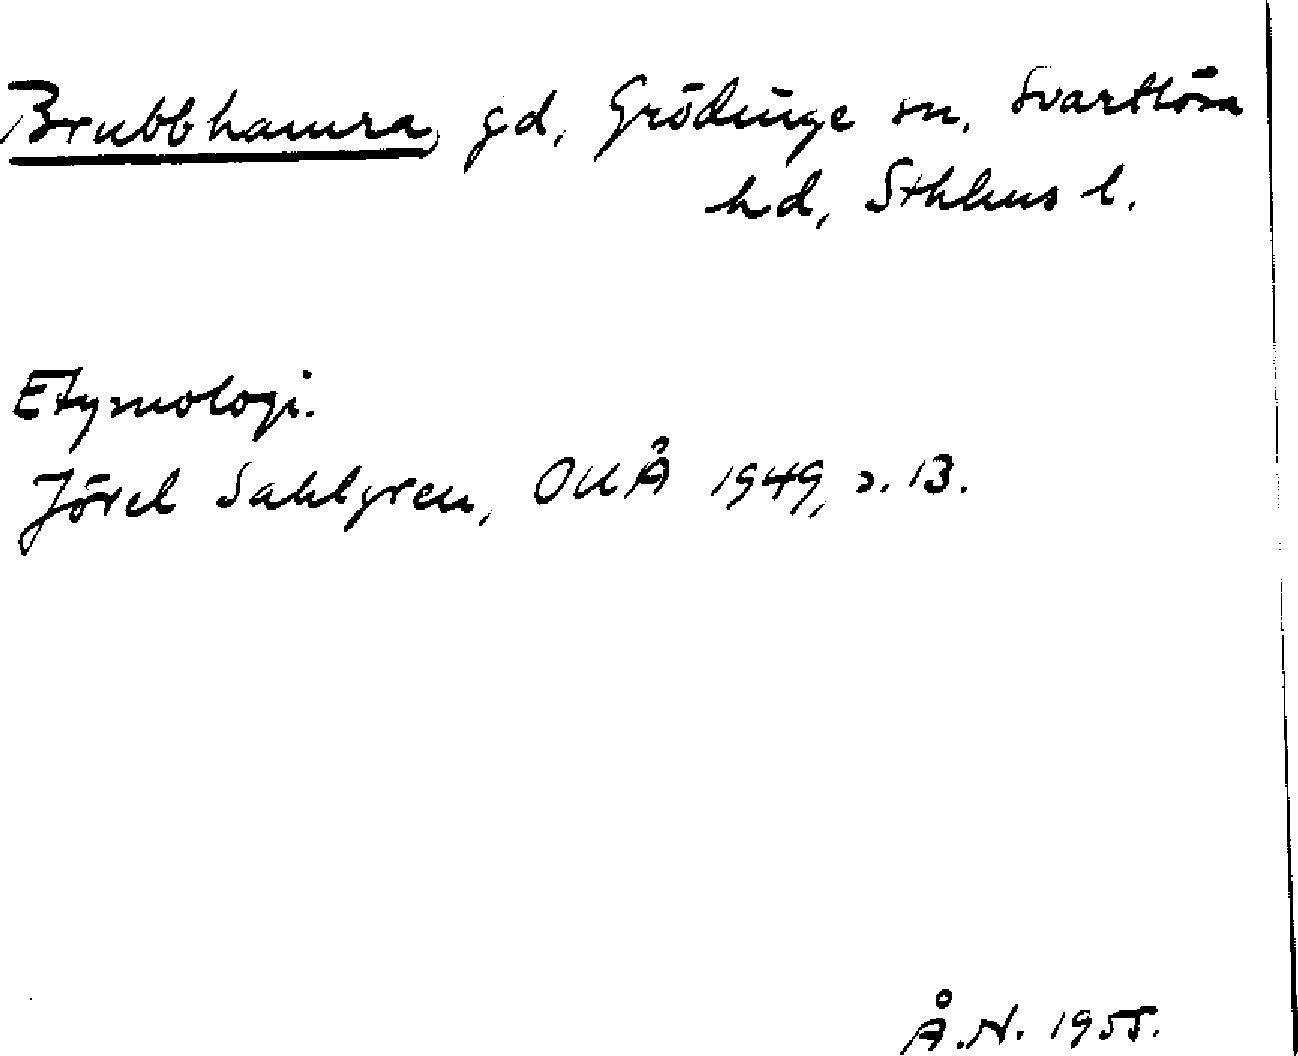 Brubbhamra, gd, Grödinge sn, Svartlösa
hd, Sthlms l.
Etymologi.
Jöran Sahlgren, OUÅ 1949, s. 13.
Å.N. 1955.